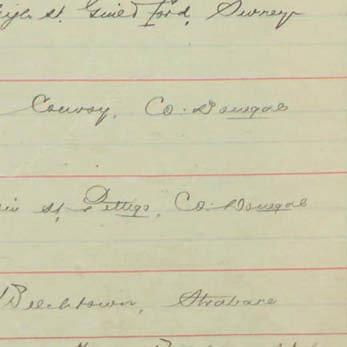 st. Guildford, Surrey
Convoy, Co. Donegal
st, Pettigo, Co. Donegal
Beechtown, Strabane